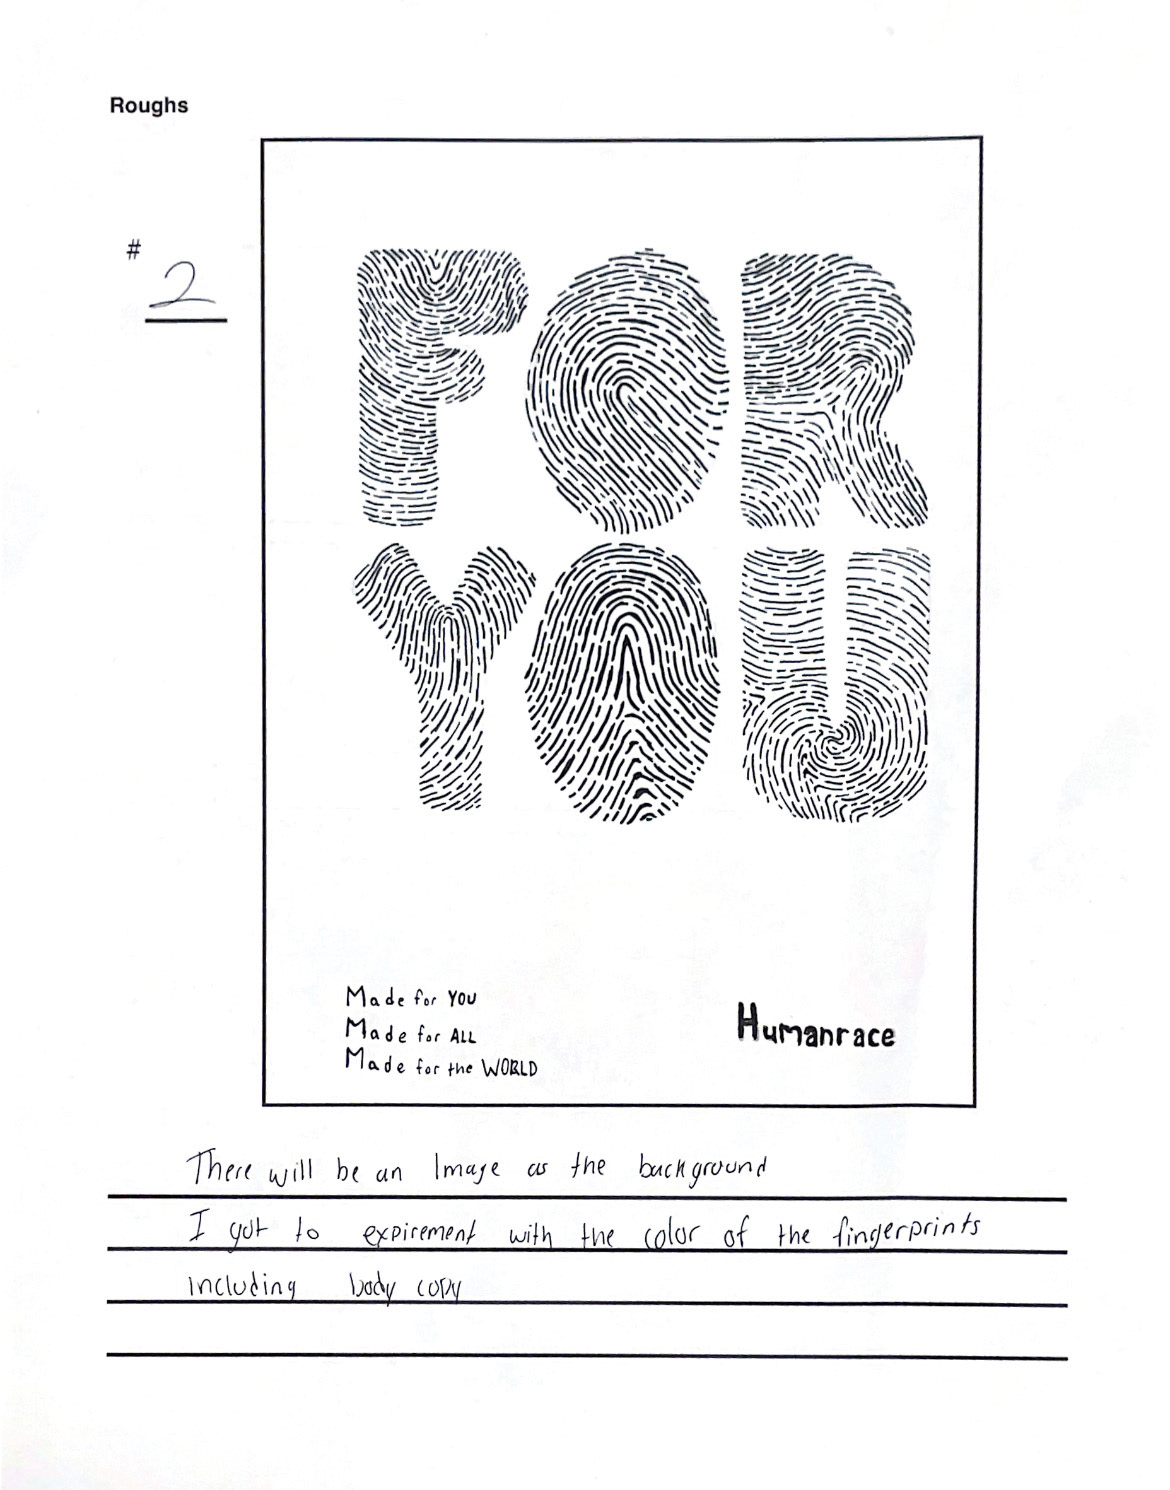 Roughs
#
2
FOR
YOU
Made for YOU
Made for ALL
Made for the WORLD
Humanrace
There will be an Image as the background
I got to expirement with the color of the fingerprints
including body copy